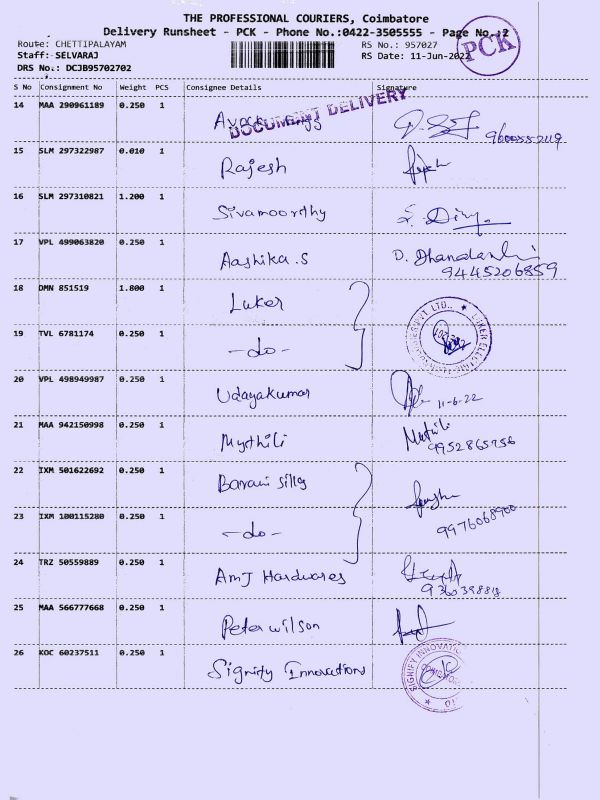 THE PROFESSIONAL COURIERS, Coimbatore
Delivery Runsheet - PCK - Phone No.:0422-3505555 - Page No.:2
Route: CHETTIPALAYAM RS No.: 957027
Staff: SELVARAJ RS Date: 11-Jun-2022
DRS No.: DCJB95702702
PCK
S No Consignment No Weight PCS Consignee Details Signature
14 MAA 290961189 0.250 1
DOCUMENT DELIVERY
15 SLM 297322987 0.010 1 Rajesh
16 SLM 297310821 1.200 1 Sivamoorthy
17 VPL 499063820 0.250 1 Aashika.S D. Dhanalakshmi
9445206859
18 DMN 851519 1.800 1 Luker
19 TVL 6781174 0.250 1 -do-
20 VPL 498949987 0.250 1 Udayakumar 11-6-22
21 MAA 942150998 0.250 1 Mythili
9952865956
22 IXM 501622692 0.250 1 Barani Silks
23 IXM 100115280 0.250 1 -do- 9976068900
24 TRZ 50559889 0.250 1 AMJ Hardwares
25 MAA 566777668 0.250 1 Peter wilson
26 KOC 60237511 0.250 1 Signify Innovations